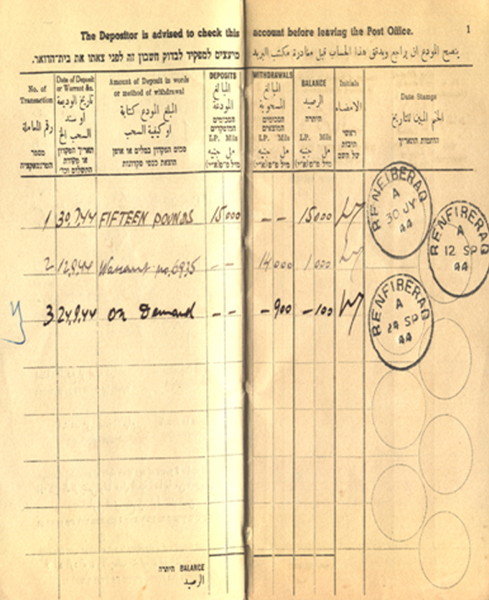 The Depositor is advised to check this account before leaving the Post Office. 1
מייעצים למפקיד לבדוק חשבון זה לפני צאתו את בית־הדואר.
ينصح المودع ان يراجع ويدقق هذا الحساب قبل مغادرة مكتب البريد
No. of Transaction
رقم المعاملة
מספר
Date of Deposit or Warrant &c.
تاريخ الوديعة
او سند
السحب الخ
Amount of Deposit in words or method of withdrawal
المبلغ المودع كتابة
او كيفية السحب
DEPOSITS
المبالغ
المودعة
הסכומים
המופקדים
LP. Mils
مل جنيه
WITHDRAWALS
المبالغ
المسحوبة
הסכומים
המוצאים
LP. Mils
مل جنيه
BALANCE
الرصيد
היתרה
LP. Mils
مل جنيه
Initials
الامضاء
ראשי
תיבות
של השם
Date Stamp
חותמת התאריך
1 30.7.44 FIFTEEN POUNDS 15 000 – – 15 000
2 12.9.44 Warrant no. 6935 – – 14 000 1 000
3 24.9.44 on Demand – – – 900 – 100
RENFIBERAQ
A
30 JY
44
RENFIBERAQ
A
12 SP
44
RENFIBERAQ
A
24 SP
44
היתרה BALANCE
الرصيد